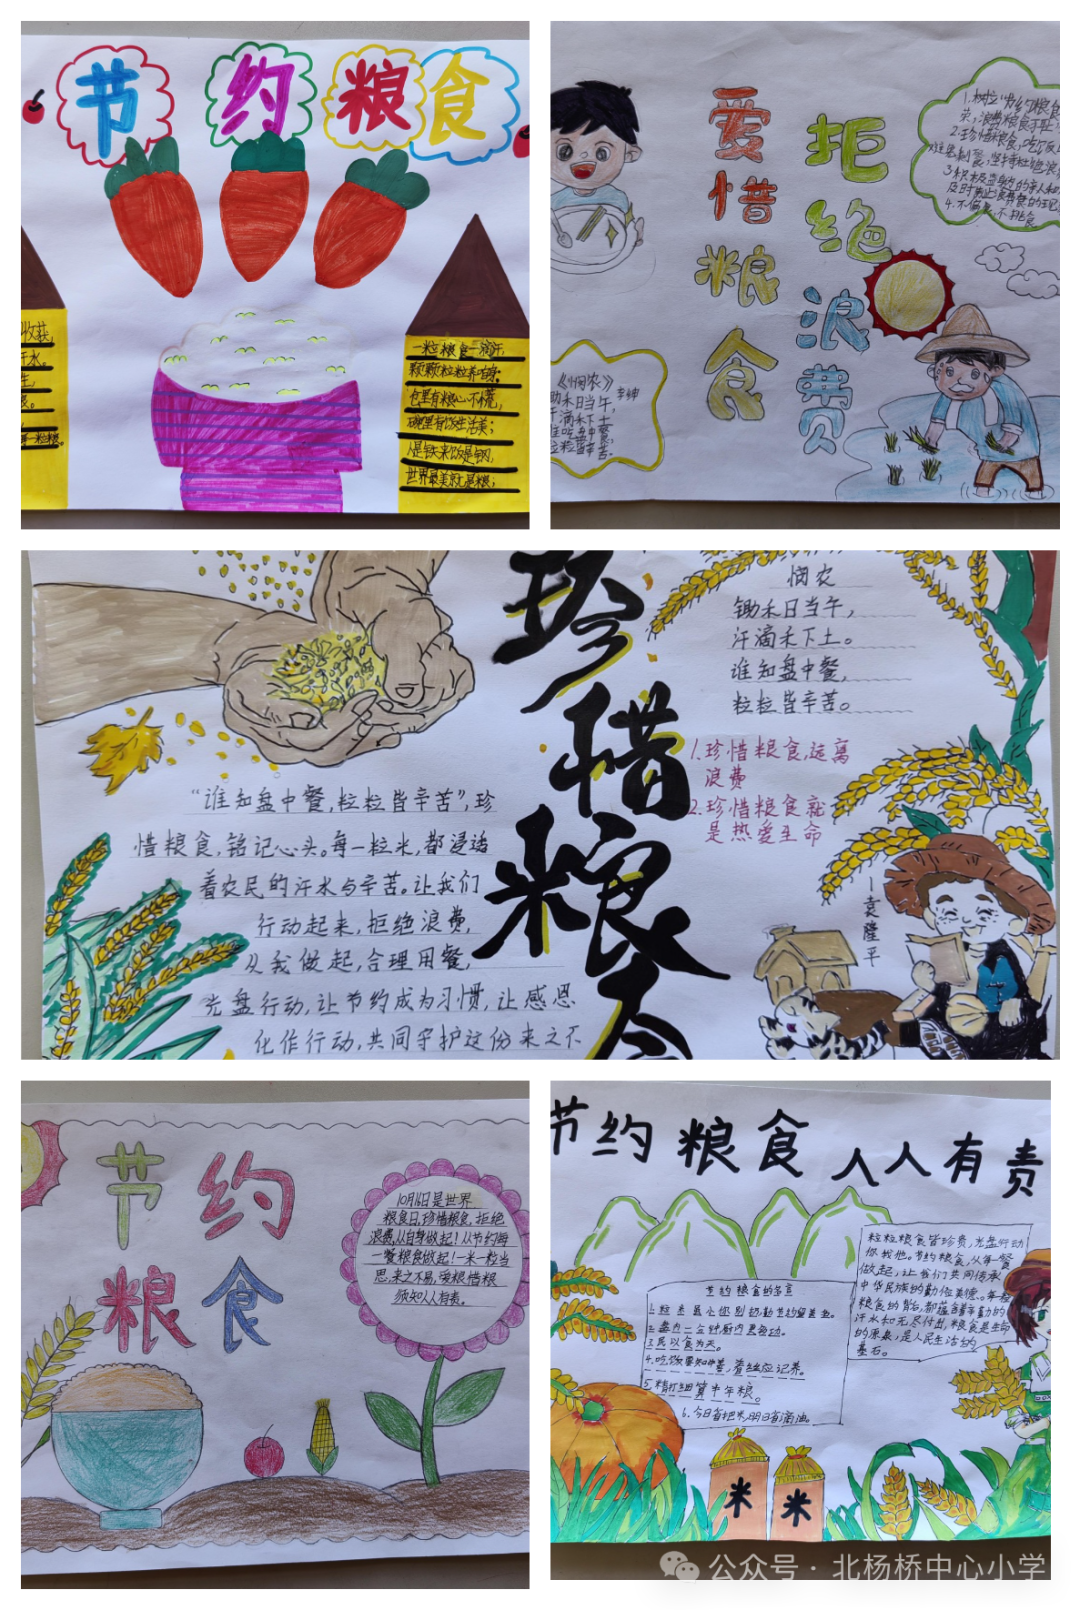 节约粮食
收获,
汗水。
一粒粮食一滴汗,
颗颗粒粒养咱身。
仓里有粮心不慌,
碗里有饭生活美;
人是铁来饭是钢,
世界最美就是粮;
爱惜粮食
拒绝浪费
2.珍惜粮食,吃饭
4.不偏食,不挑食
《悯农》
李绅
锄禾日当午,
汗滴禾下土
谁知盘中餐,
粒粒皆辛苦。
珍惜粮食
悯农
锄禾日当午,
汗滴禾下土。
谁知盘中餐,
粒粒皆辛苦。
1.珍惜粮食,远离
浪费
2.珍惜粮食就
是热爱生命
—袁隆平
“谁知盘中餐,粒粒皆辛苦”,珍
惜粮食,铭记心头。每一粒米,都浸透
着农民的汗水与辛苦。让我们
行动起来,拒绝浪费,
从我做起,合理用餐,
光盘行动,让节约成为习惯,让感恩
化作行动,共同守护这份来之不
节约
粮食
10月16日是世界
粮食日,珍惜粮食,拒绝
浪费,从自身做起!从节约每
一餐粮食做起!一米一粒当
思,来之不易,爱粮惜粮
须知人人有责。
节约粮食 人人有责
节约粮食的名言
1.粒米虽小你别扔,勤节约留美业。
3.民以食为天。
5.精打细算半年粮。
6.今日省把米,明日省滴油。
粒粒粮食皆珍贵,光盘行动
你我他。节约粮食,从每一餐
做起,让我们共同传承
中华民族的勤俭美德。每粒
粮食的背后,都蕴含着辛勤的
汗水和无尽付出,粮食是生命
的源泉,是人民生活的
基石。
米
米
公众号·北杨桥中心小学